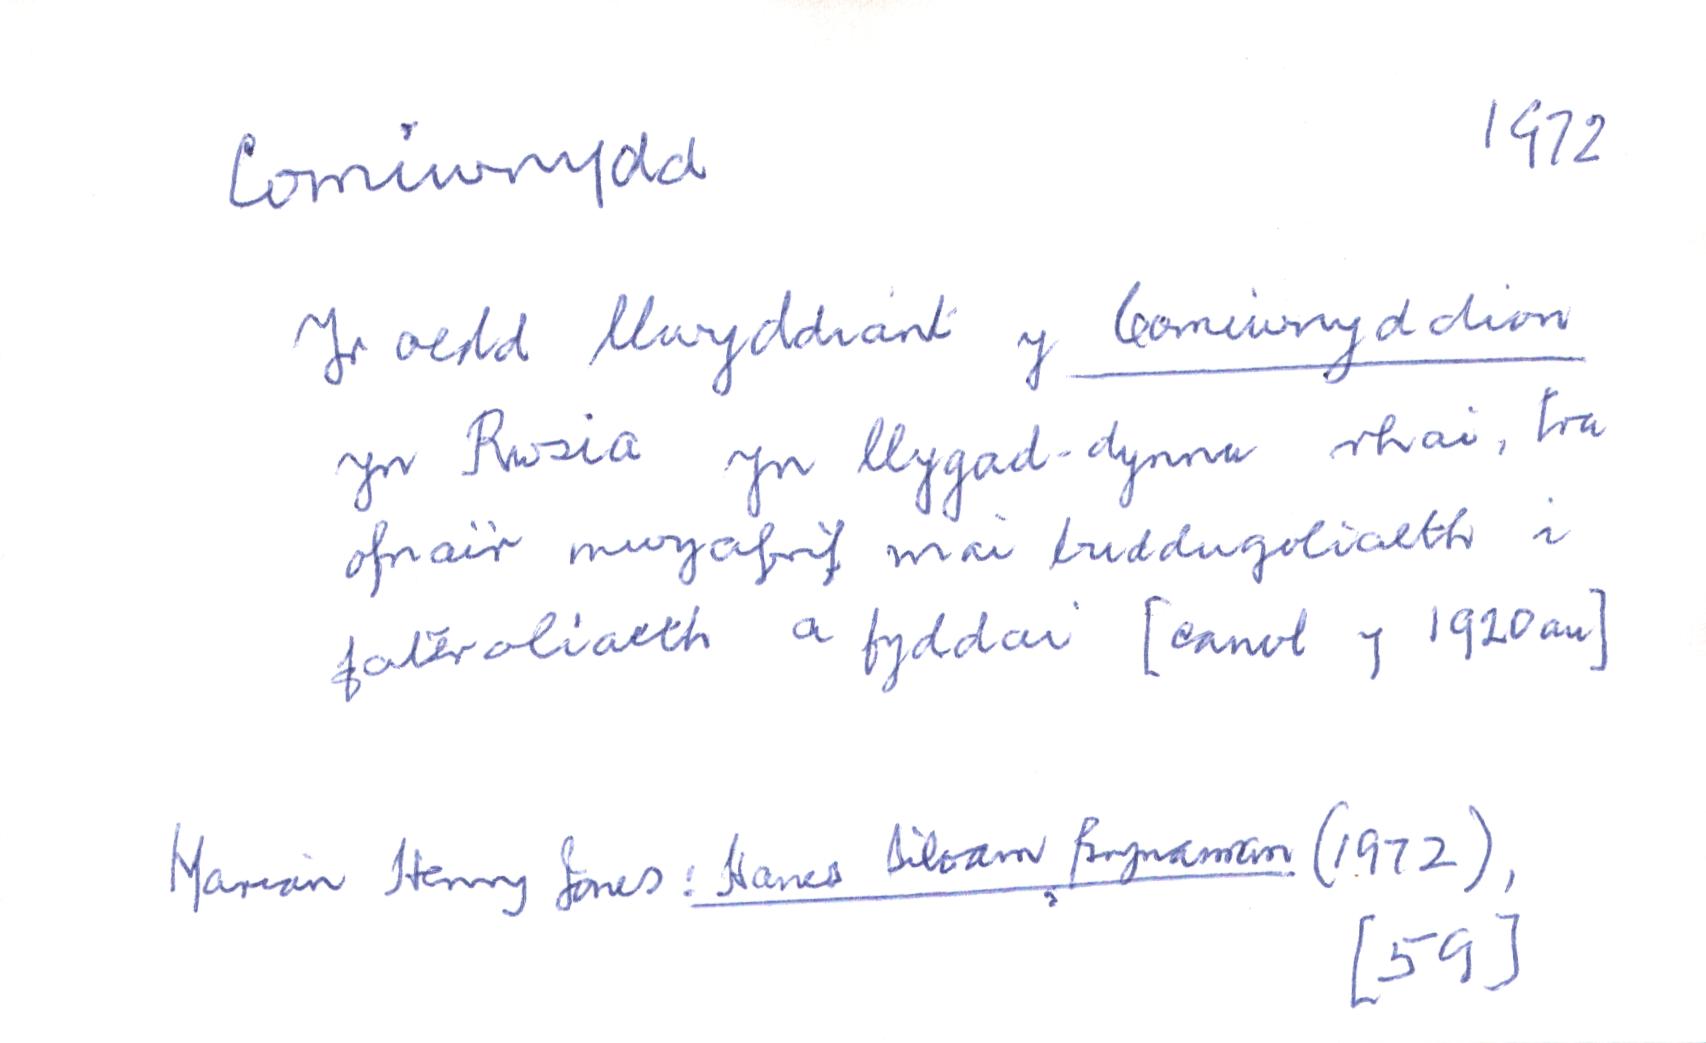 Comiwnydd 1972
Yr oedd llwyddiant y Comiwnyddion
yn Rwsia yn llygad-dynnu rhai, tra
ofnai'r mwyafrif mai buddugoliaeth i
fateroliaeth a fyddai [canol y 1920au]
Marian Henry Jones: Hanes Siloam, Brynaman (1972),
[59]